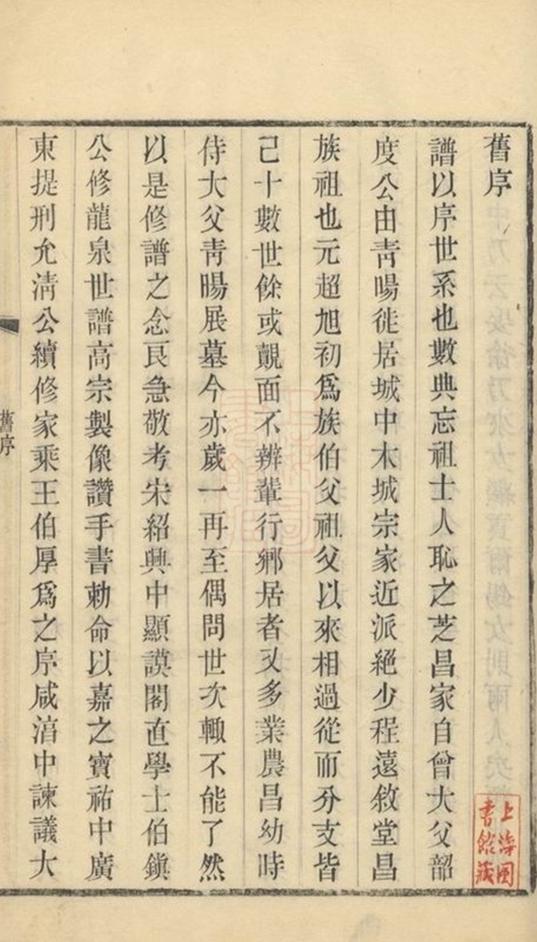 舊序
譜以序世系也數典忘祖士人恥之芝昌家自曾大父韶
度公由靑暘徙居城中本城宗家近派絕少程遠敘堂昌
族祖也元超旭初爲族伯父祖父以來相過從而分支皆
己十數世餘或覿面不辨輩行鄕居者又多業農昌幼時
侍大父靑暘展墓今亦歲一再至偶問世次輙不能了然
以是修譜之念㫐急敬考宋紹興中顯謨閣直學士伯鎭
公修龍泉世譜高宗製像讚手書勅命以嘉之寶祐中廣
東提刑允淸公續修家乘王伯厚爲之序咸淳中諫議大
舊序
上海圖
書館藏